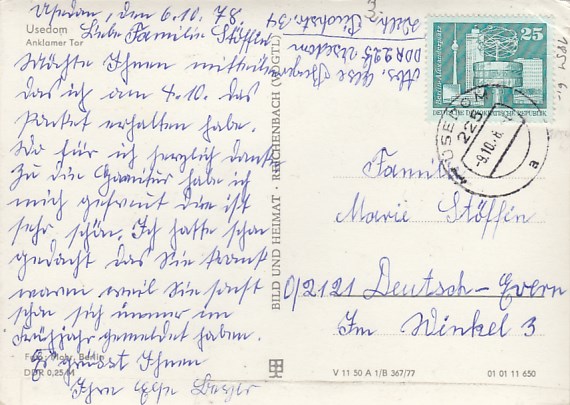 Usedom, den 6.10.78
Usedom
Anklamer Tor
Liebe Familie Stöffin
Möchte Ihnen mitteilen
das ich am 4.10. das
Paket erhalten habe.
Wo für ich herzlich danke
Zu die Garnitur habe ich
mich gefreut die ist
sehr schön. Ich hatte schon
gedacht das Sie krank
waren weil Sie sonst
schon sich immer im
Frühjahr gemeldet haben.
Es grüsst Ihnen
Ihre Else
Foto: Mohr, Berlin
DDR 0,25 M
Abs. Else
DDR 225 Usedom
34
BILD UND HEIMAT · REICHENBACH (VOGTL)
25
DEUTSCHE DEMOKRATISCHE REPUBLIK
USEDOM
225
-9.10.78
a
Familie
Marie Stöffin
2121 Deutsch-Evern
Im Winkel 3
V 11 50 A 1/B 367/77
01 01 11 650